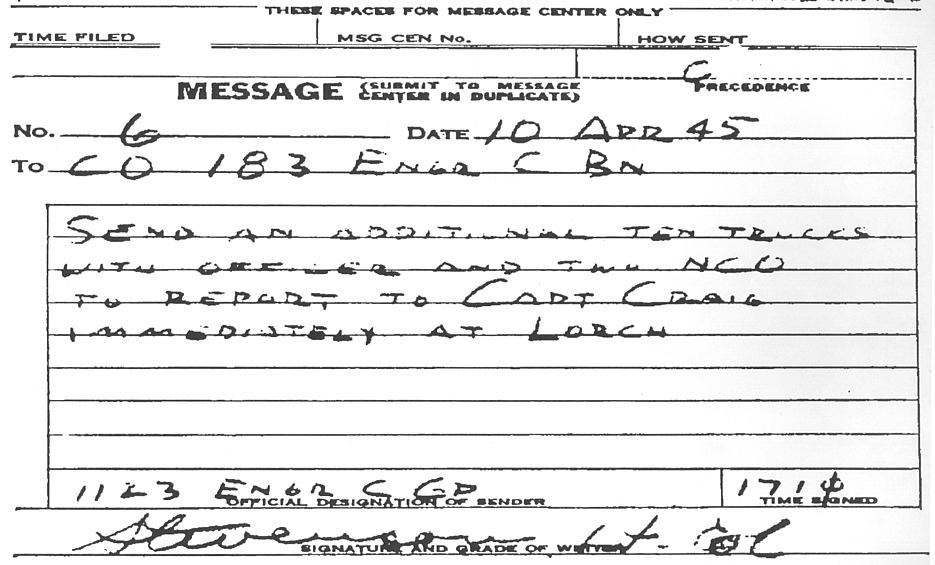 THESE SPACES FOR MESSAGE CENTER ONLY
TIME FILED MSG CEN No. HOW SENT
C
MESSAGE (SUBMIT TO MESSAGE CENTER IN DUPLICATE) PRECEDENCE
No. 6 DATE 10 APR 45
To CO 183 ENGR C BN
SEND AN ADDITIONAL TEN TRUCKS
WITH OFFICER AND TWO NCO
TO REPORT TO CAPT CRAIG
IMMEDIATELY AT LORCH
1123 ENGR C GP 1710
OFFICIAL DESIGNATION OF SENDER TIME SIGNED
Stevenson Lt. Col
SIGNATURE AND GRADE OF WRITER